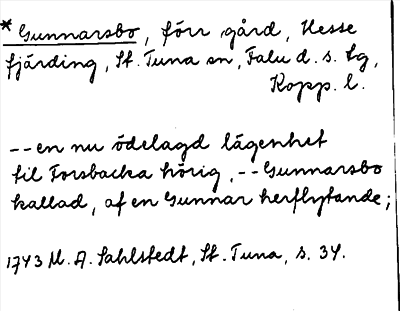 * Gunnarsbo, förr gård, Hesse
fjärding, St. Tuna sn, Falu d. s. tg,
Kopp. l.
-- en nu ödelagd lägenhet
til Forsbacka hörig, -- Gunnarsbo
kallad, af en Gunnar herflytande;
1743 M. A. Sahlstedt, St. Tuna, s. 34.